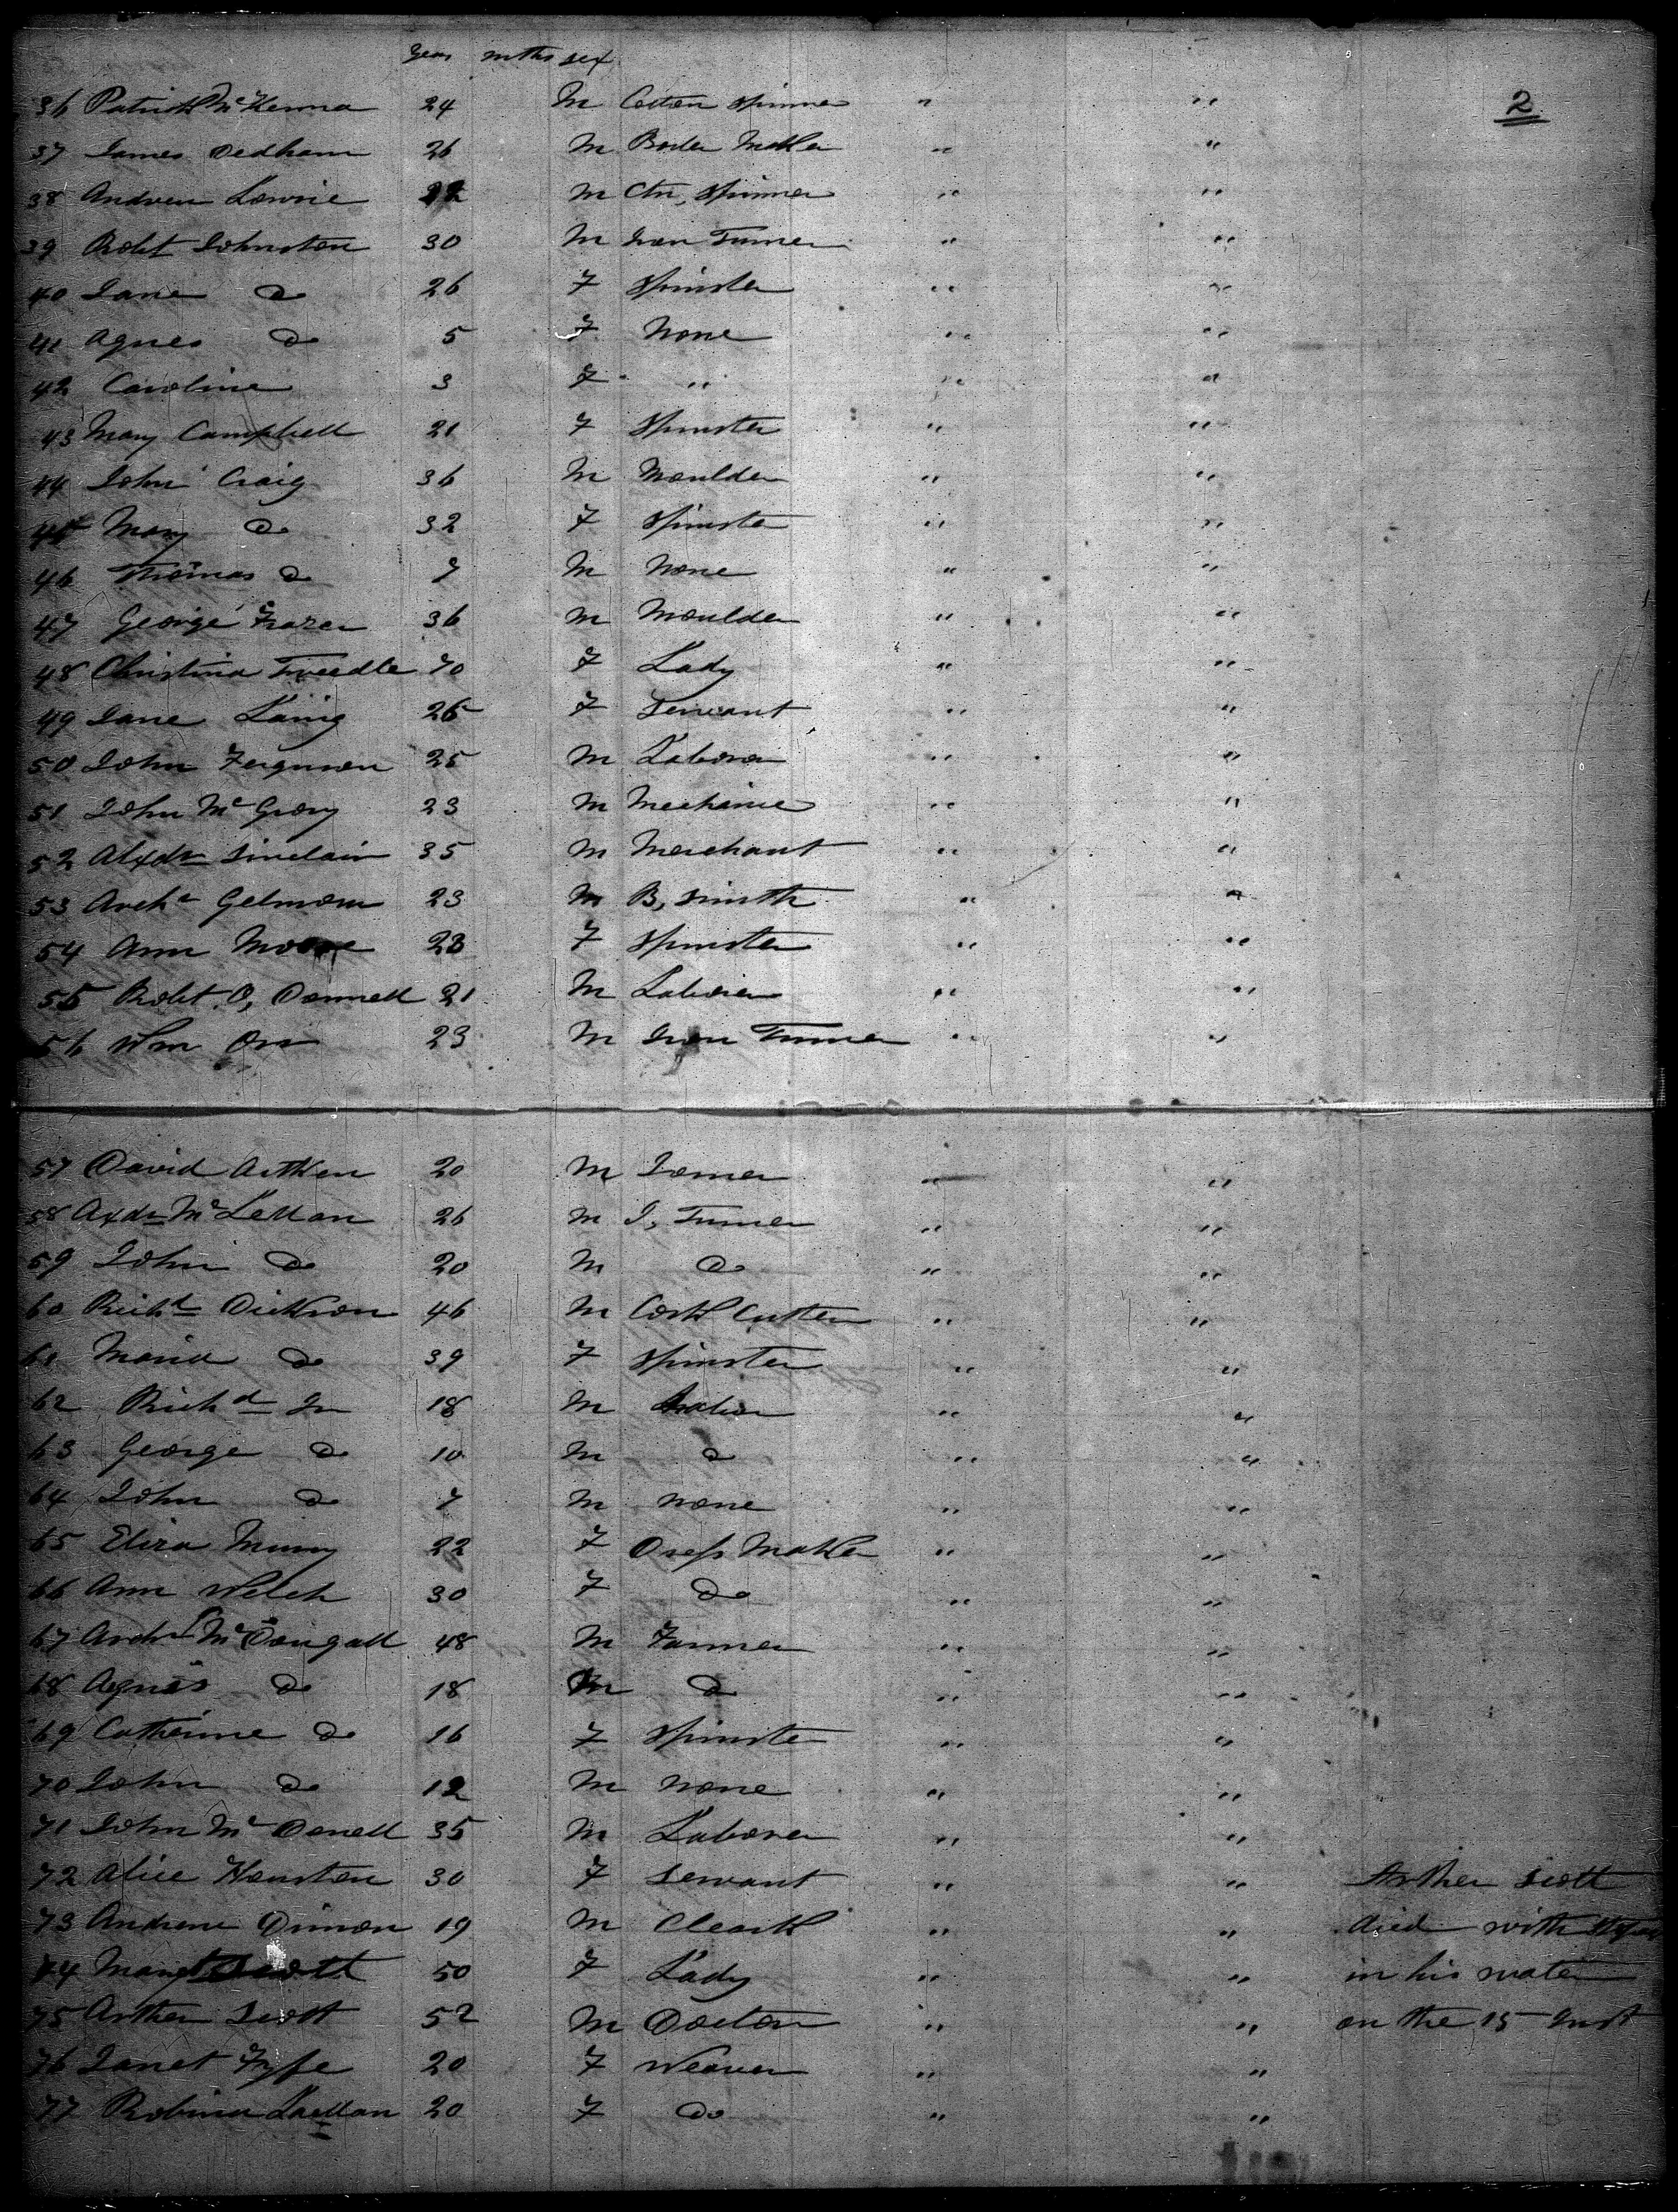 Years mths sex
2
36 Patrick McKenna 24 M Cotton Spinner " "
37 James Dedham 26 M Boiler Maker " "
38 Andrew Lowrie M Ctn, Spinner " "
39 Robt Johnston 30 M Iron Turner " "
40 Jane Do 26 F Spinster " "
41 Agnes Do 5 F None " "
42 Caroline 3 F " " "
43 Mary Campbell 21 F Spinster " "
44 John Craig 36 M Moulder " "
45 Mary Do 32 F Spinster " "
46 Thomas Do 7 M None " "
47 George Frazer 36 M Moulder " "
48 Christina Tweedle 70 F Lady " "
49 Jane Laing 26 F Servant " "
50 John Ferguson 25 M Laborer " "
51 John McGrory 23 M Mechanic " "
52 Alxdr Sinclair 35 M Merchant " "
53 Archd Gelmour 23 M B, Smith " "
54 Ann Moore 23 F Spinster " "
55 Robt O, Donnell 21 M Laborer " "
56 Wm Orr 23 M Iron Turner " "
57 David Aitken 20 M Joiner " "
58 Axdr McLellan 26 M I, Turner " "
59 John Do 20 M Do " "
60 Richd Dickson 46 M Cork Cutter " "
61 Maria Do 39 F Spinster " "
62 Richd Jr 18 M " "
63 George Do 10 M Do " "
64 John Do 7 M None " "
65 Eliza Murry 22 F Dress Maker " "
66 Ann Welch 30 F Do " "
67 Archd McDougall 48 M Farmer " "
68 Agnes Do 18 M Do " "
69 Catherine Do 16 F Spinster " "
70 John Do 12 M None " "
71 John McDonell 35 M Laborer " "
72 Alice Houston 30 F Servant " " Arther Scott
73 Andrew Dimon 19 M Cleark " " died with
74 Margt Scott 50 F Lady " " in his water
75 Arther Scott 52 M Doctor " " on the 15 Inst
76 Janet Fyfe 20 F Weaver " "
77 Robina 20 F Do " "